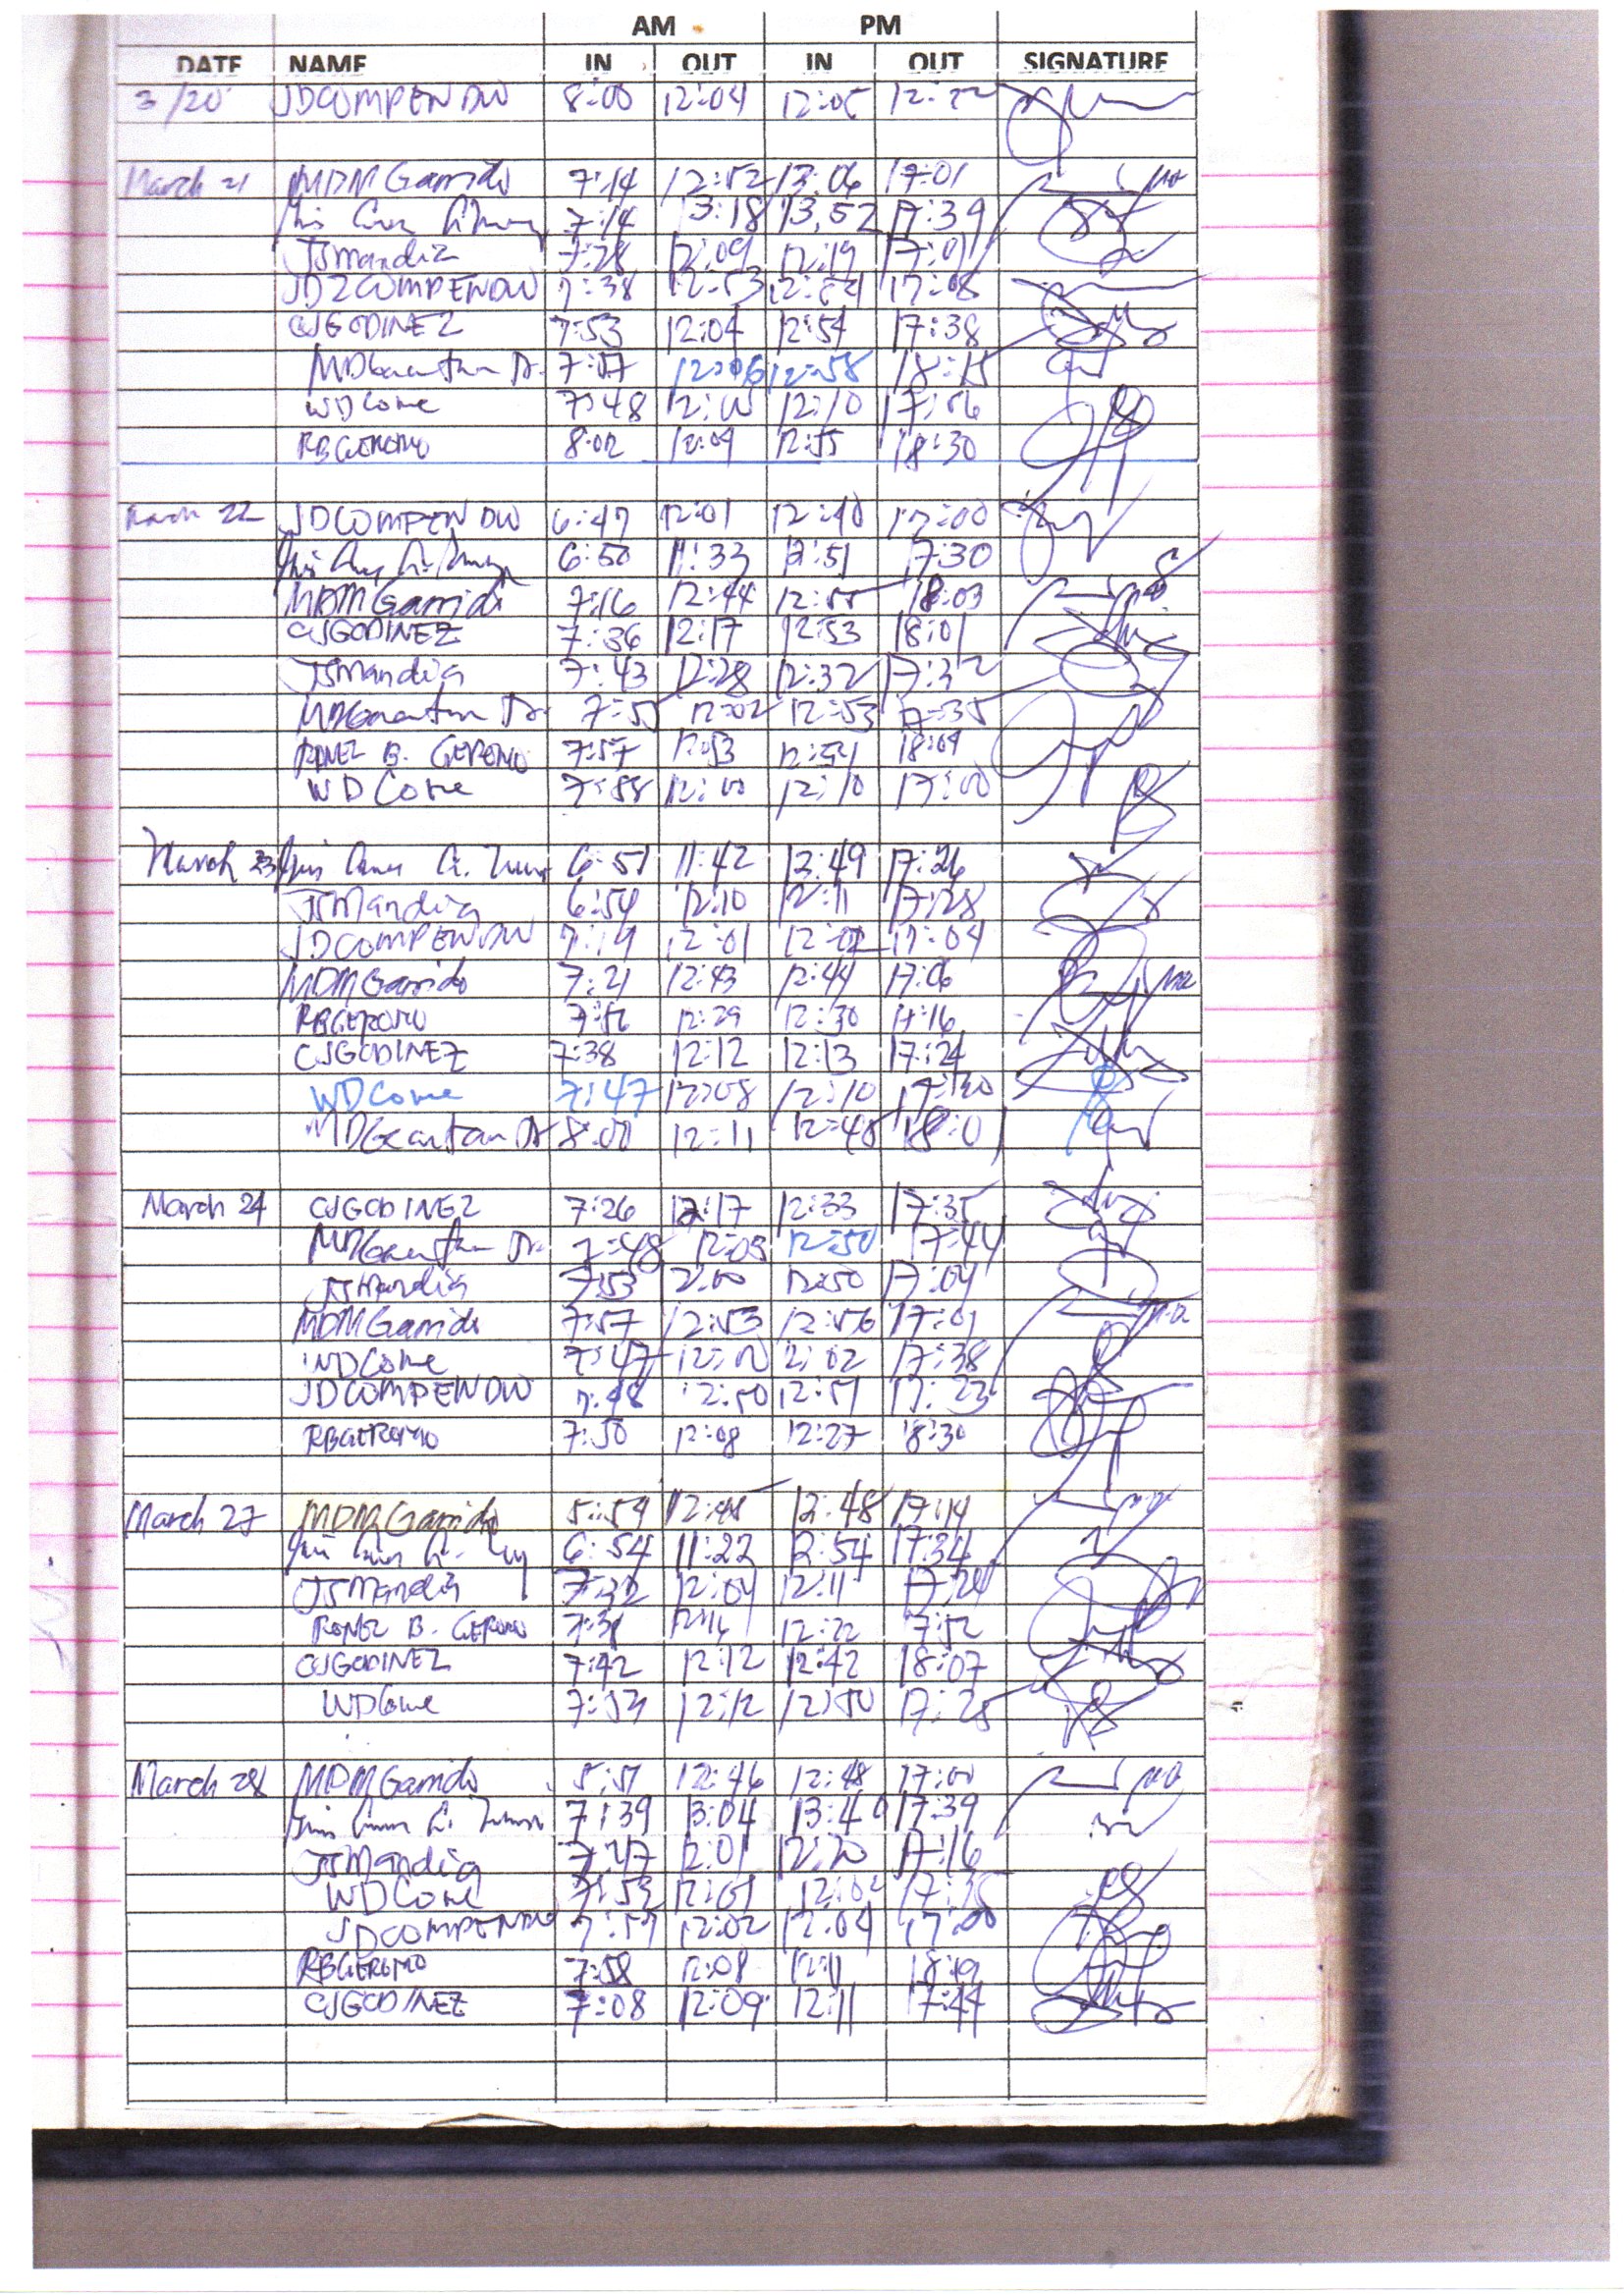 AM PM
DATE NAME IN OUT IN OUT SIGNATURE
3/20 JDCOMPENDIO 8:00 12:04 12:05 12:22
March 21 MDMGarrido 7:14 12:52 13:06 17:01
7:14 13:18 13:52 17:39
JSMandia 7:28 12:09 12:19 17:01
JDZCOMPENDIO 7:38 12:53 12:54 17:08
CJGODINEZ 7:53 12:04 12:54 17:38
12:06 12:58 18:15
WDCone 7:48 12:10 17:56
RBGERONO 8:02 12:09 12:55 18:30
March 22 JDCOMPENDIO 6:47 12:01 12:40 17:00
6:50 11:33 12:51 17:30
MDMGarrido 7:16 12:44 12:55 18:03
CJGODINEZ 7:36 12:17 12:53 18:01
JSMandia 7:43 12:28 12:32 17:32
7:55 12:02 12:53 17:35
RONEZ B. GERONO 7:57 12:53 12:54 18:04
WDCone 7:58 12:00 12:10 17:00
March 23 6:51 11:42 12:49 17:26
JSMandia 6:54 12:10 12:11 17:28
JDCOMPENDIO 7:19 12:01 12:02 17:04
MDMGarrido 7:21 12:43 12:44 17:06
RBGERONO 12:29 12:30 17:16
CJGODINEZ 7:38 12:12 12:13 17:24
WDCone 7:47 12:08 12:10 17:30
8:00 12:11 12:48 18:01
March 24 CJGODINEZ 7:26 12:17 12:33 17:35
7:48 12:03 12:50 17:44
JSMandia 7:53 12:00 12:50 17:04
MDMGarrido 7:57 12:53 12:56 17:01
WDCone 7:47 12:00 12:02 17:38
JDCOMPENDIO 7:48 12:50 12:51 17:23
RBGERONO 7:50 12:08 12:27 18:30
March 27 MDMGarrido 5:59 12:48 17:14
6:54 11:22 12:54 17:34
JSMandia 7:32 12:04 12:11 17:24
RONEZ B. GERONO 7:38 12:16 12:22 17:52
CJGODINEZ 7:42 12:12 12:42 18:07
WDCone 7:53 12:12 12:50 17:25
March 28 MDMGarrido 5:51 12:46 12:48 17:00
7:39 13:04 13:40 17:39
JSMandia 7:47 12:01 12:20 17:16
WDCone 7:53 12:01 12:02 17:35
JDCOMPENDIO 7:57 12:02 12:04 17:00
RBGERONO 7:58 12:08 12:11 18:19
CJGODINEZ 7:08 12:09 12:11 17:44